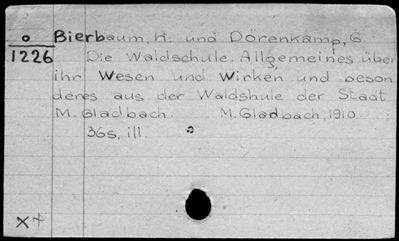 o Bierbaum, H. und Dörenkamp, G.
1226 Die Waldschule. Allgemeines über
ihr Wesen und Wirken und beson
deres aus der Waldshule der Stadt
M. Gladbach. M. Gladbach, 1910
36s, ill.
x+